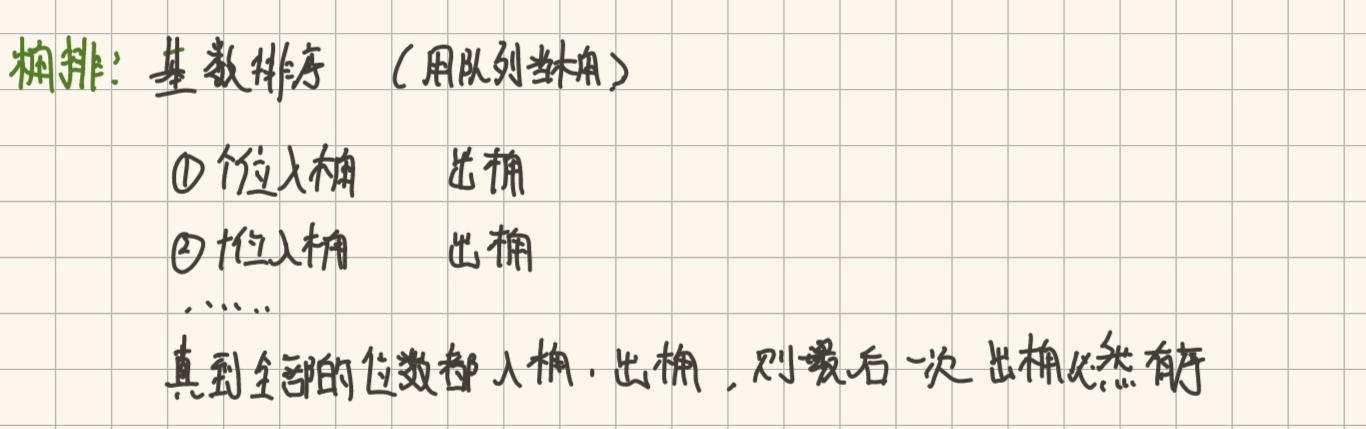 桶排：基数排序 （用队列当桶）
①个位入桶 出桶
②十位入桶 出桶
......
直到全部的位数都入桶．出桶，则最后一次出桶必然有序